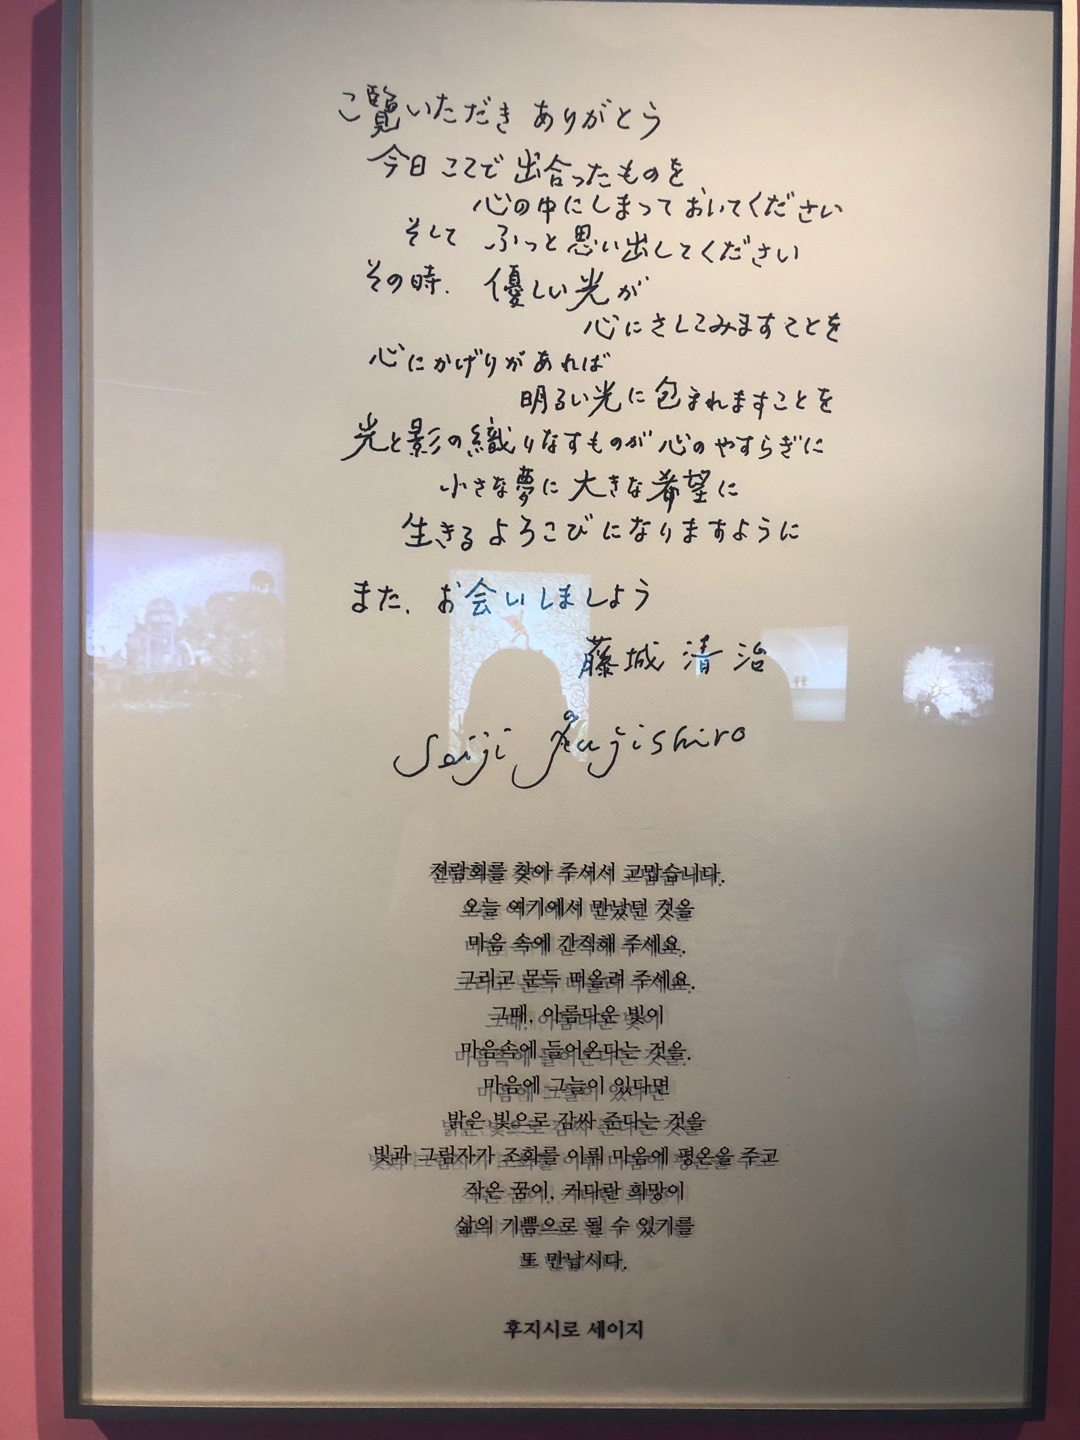 ご覧いただき ありがとう
今日 ここで 出合ったものを
心の中にしまって おいてください
そして ふっと 思い出してください
その時、優しい光が
心にさしこみますことを
心にかげりがあれば
明るい光に包まれますことを
光と影の織りなすものが 心のやすらぎに
小さな夢に 大きな希望に
生きる よろこびになりますように
また、お会いしましょう
藤城 清治
Seiji Fujishiro
전람회를 찾아 주셔서 고맙습니다.
오늘 여기에서 만났던 것을
마음 속에 간직해 주세요.
그리고 문득 떠올려 주세요.
그때, 아름다운 빛이
마음속에 들어온다는 것을.
마음에 그늘이 있다면
밝은 빛으로 감싸 준다는 것을
빛과 그림자가 조화를 이뤄 마음에 평온을 주고
작은 꿈이, 커다란 희망이
삶의 기쁨으로 될 수 있기를
또 만납시다.
후지시로 세이지